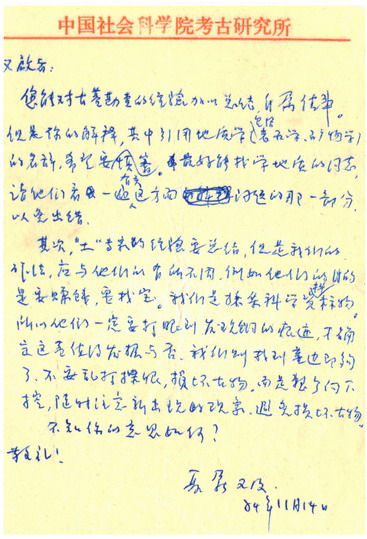 中国社会科学院考古研究所
又敬启:
您能对古墓勘查的经验加以总结,自属佳事。
但是你的解释,其中引用地质学(包括岩石学、矿物学)
的名辞,希望要慎密。最好能找学地质的同志,
请他们看一遍有关这方面问题的那一部分,
以免出错。
其次,“土”专家的经验要总结,但是我们的
办法,应与他们的有所不同。例如他们的目的
是要赚钱,要找宝。我们是探索科学资料,
所以他们一定要打眼到发现铜的痕迹,不确
定这是值得发掘与否。我们则找到墓边即够
了,不要乱打探眼,损坏古物。而是整个向下
挖,随时注意新出现的现象,避免损坏古物。
不知你的意思如何?
敬礼!
夏鼐又及
84年11月14日